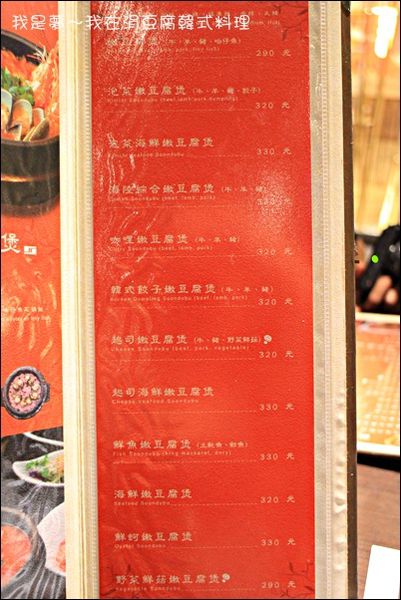 我是賽～我在涓豆腐韓式料理
290 元
泡菜嫩豆腐煲 (牛、羊、豬、餃子)
Kimchi Soondubu (beef, lamb, pork, dumpling)
320 元
泡菜海鮮嫩豆腐煲
Kimchi Seafood Soondubu
330 元
海陸綜合嫩豆腐煲 (牛、羊、豬)
Combo Soondubu (beef, lamb, pork)
320 元
咖哩嫩豆腐煲 (牛、羊、豬)
Curry Soondubu (beef, lamb, pork)
320 元
韓式餃子嫩豆腐煲 (牛、羊、豬)
Korean Dumpling Soondubu (beef, lamb, pork)
320 元
起司嫩豆腐煲 (牛、豬、野菜鮮菇)
Cheese Soondubu (beef, pork, vegetable)
320 元
起司海鮮嫩豆腐煲
Cheese seafood Soondubu
330 元
鮮魚嫩豆腐煲 (土魠魚、鯛魚)
Fish Soondubu (king mackerel, dory)
330 元
海鮮嫩豆腐煲
Seafood Soondubu
320 元
鮮蚵嫩豆腐煲
Oyster Soondubu
330 元
野菜鮮菇嫩豆腐煲
Vegetable Soondubu
290 元
煲